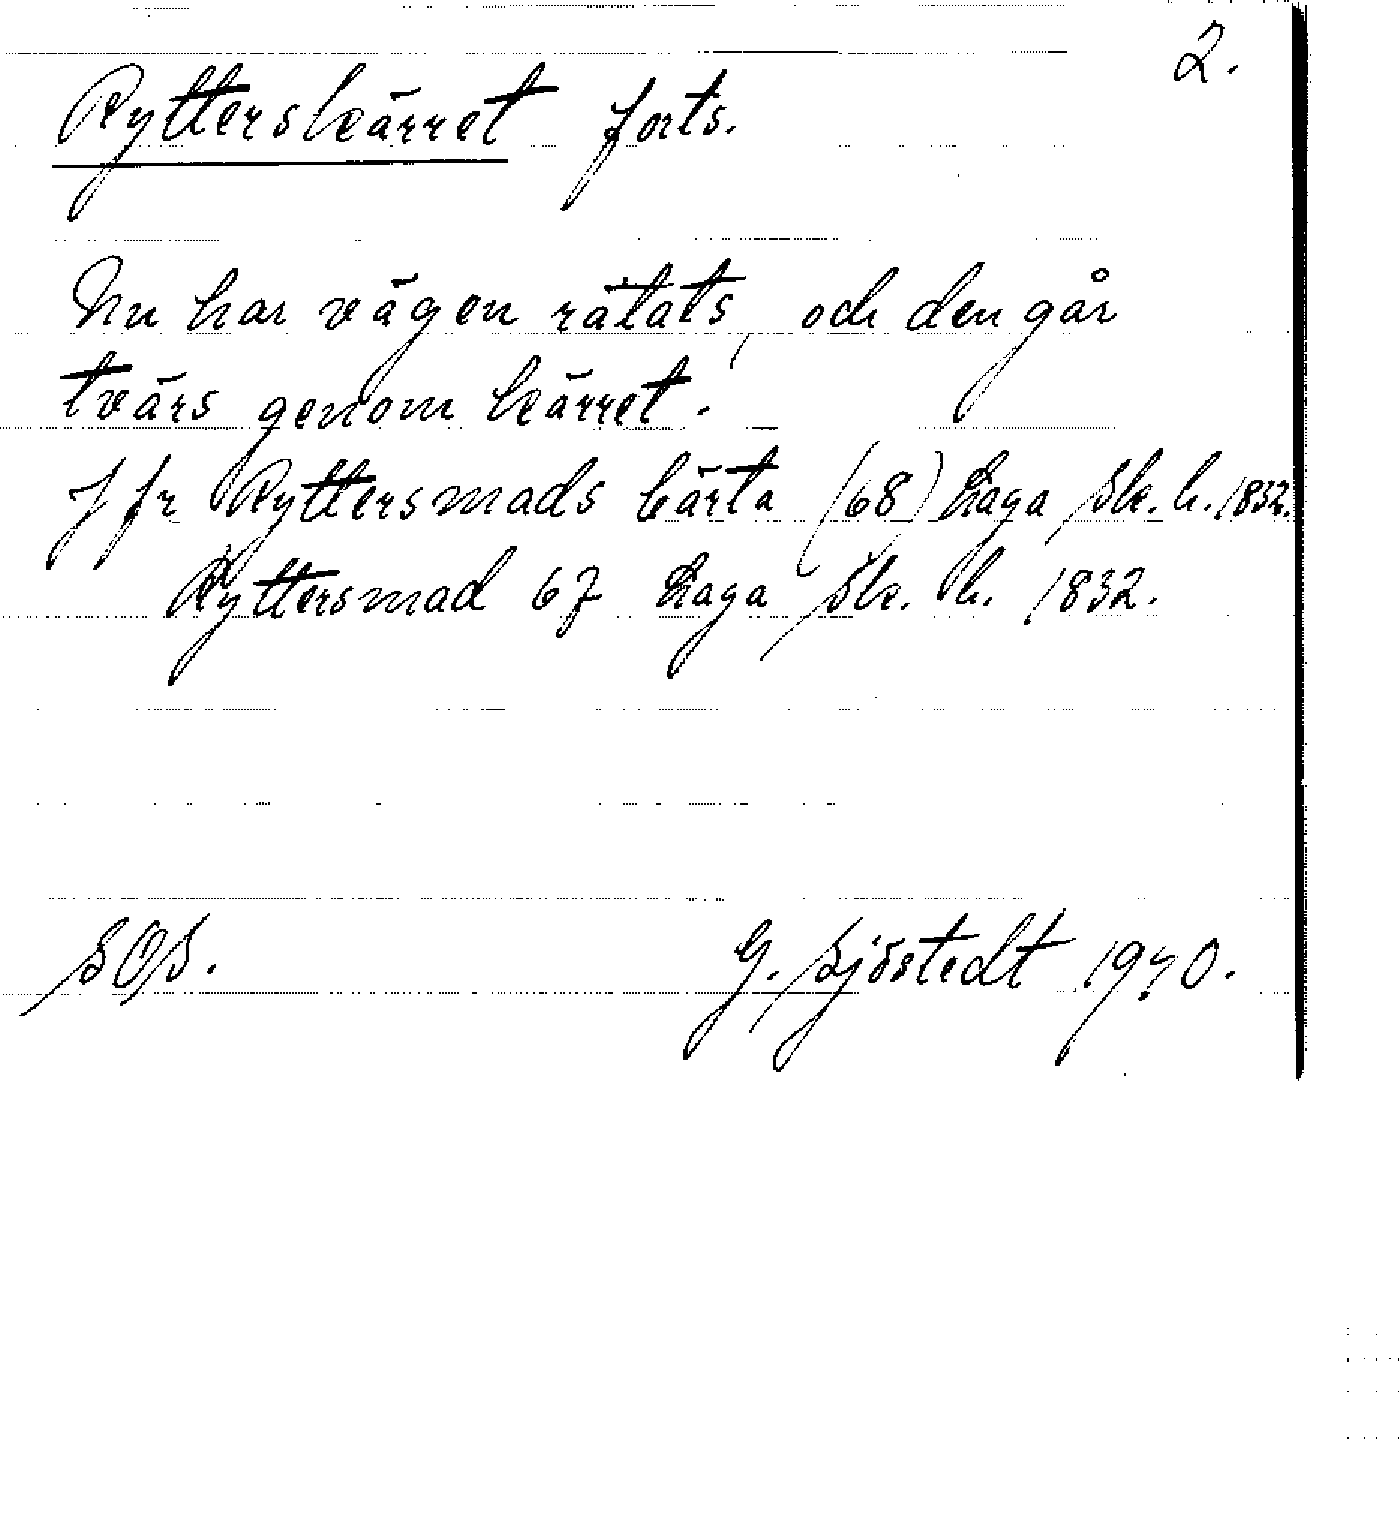 2.
Rytterskärret forts.
Nu har vägen rätats, och den går
tvärs genom kärret.
Jfr Ryttersmads bärta (68) Laga Sk. h. 1832.
Ryttersmad 67 Laga Sk. h. 1832.
SOS.
G. Sjöstedt 1940.